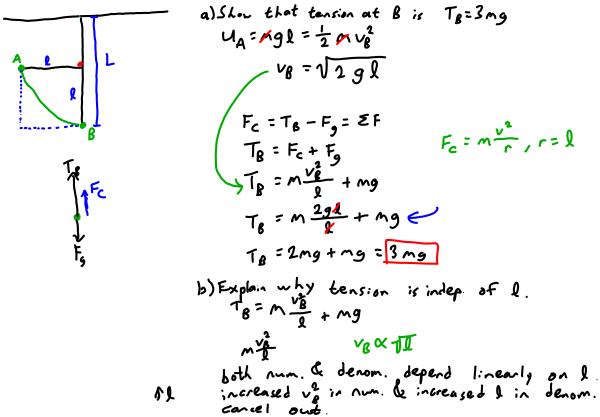 a) Show that tension at B is T_B = 3mg
U_A = mgl = 1/2 m v_B^2
v_B = √(2gl)
A
l
L
l
B
F_C = T_B - F_g = ΣF
T_B = F_C + F_g
F_C = m v^2/r, r = l
T_B = m v_B^2/l + mg
T_B
F_C
F_g
T_B = m 2gl/l + mg
T_B = 2mg + mg = 3mg
b) Explain why tension is indep. of l.
T_B = m v_B^2/l + mg
m v_B^2/l
v_B ∝ √l
both num. & denom. depend linearly on l.
↑l
increased v_B^2 in num. & increased l in denom.
cancel out.